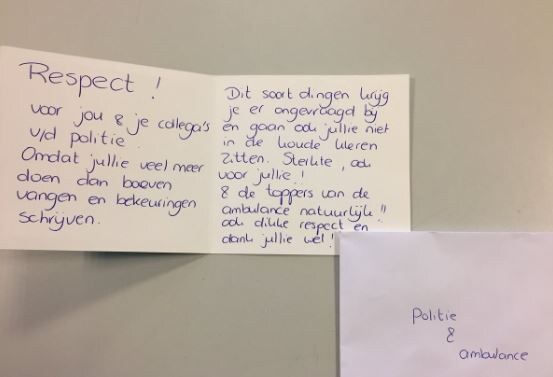 Respect !
voor jou & je collega's
v/d politie
Omdat jullie veel meer
doen dan boeven
vangen en bekeuringen
schrijven.
Dit soort dingen krijg
je er ongevraagd bij
en gaan ook jullie niet
in de koude kleren
zitten. Sterkte, ook
voor jullie!
& de toppers van de
ambulance natuurlijk!!
ook dikke respect en
dank jullie wel!
Politie
&
ambulance